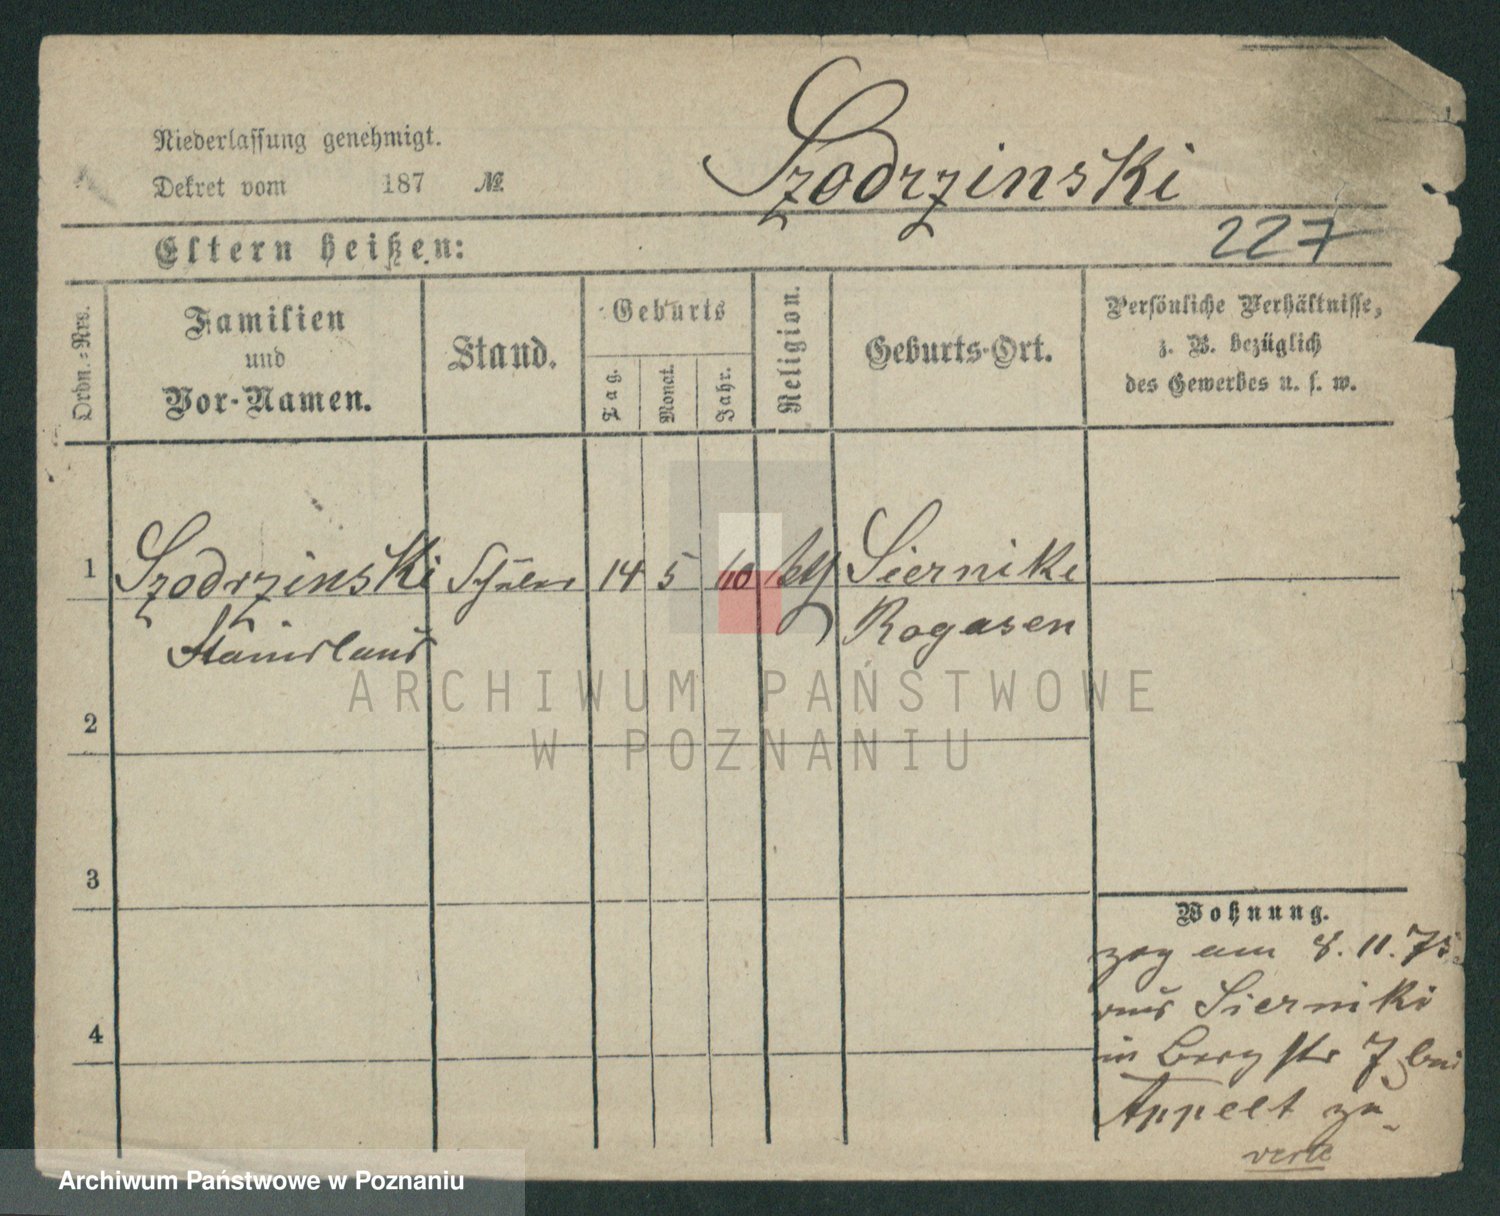 Szodrzinski
Niederlassung genehmigt.
Dekret vom 187 №
227
Eltern heißen:
Ordn.=Nrs.
Familien
und
Vor-Namen.
Stand.
Geburts
Tag.
Monat.
Jahr.
Religion.
Geburts-Ort.
Persönliche Verhältnisse,
z. B. bezüglich
des Gewerbes u. s. w.
1 Szodrzinski Schüler 14 5 60 Siernike
Stanislaus Rogasen
2
3
4
Wohnung.
zog am 8. 11. 75
aus Sierniki
in Berg str 7 bei
Appelt zu
verte
ARCHIWUM PAŃSTWOWE
W POZNANIU
Archiwum Państwowe w Poznaniu